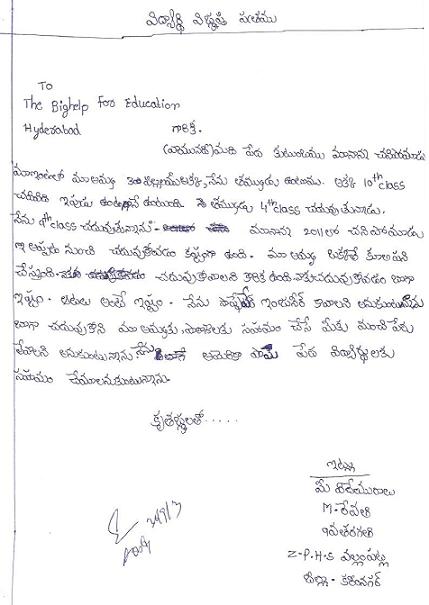 విద్యార్థి విజ్ఞప్తి పత్రము
To
The Bighelp For Education
Hyderabad గారికి,
(వ్రాయునది) మాది పేద కుటుంబము మానాన్న చనిపోయాడు
మాఇంటిలో మా అమ్మ అక్క, నేను తమ్ముడు ఉంటాము. అక్క 10th class
చదివి ఇప్పుడు ఉంటుంది. తమ్ముడు 4th class చదువుతున్నాడు.
నేను 9th class చదువుతున్నాను. మానాన్న 2011లో చనిపోయాడు
ఇ అప్పడు నుంచి చదువుకోవడం కష్టంగా ఉంది. మా అమ్మ ఒక్కతే కూలిపని
చేస్తుంది. చదువుకోవాలని కోరిక ఉంది నాకు చదువుకోవడం బాగా
ఇష్టం. ఆటలు అంటే ఇష్టం. నేను ఇంజనీర్ కావాలని అనుకుంటున్నాను
బాగా చదువుకొని మా అమ్మకు సహాయం చేసి మీకు మంచి పేరు
తేవాలని అనుకుంటున్నాను నేను పేద విద్యార్థులకు
సహాయం చేయాలనుకుంటున్నాను.
కృతజ్ఞతలతో.....
ఇట్లు
మీ
M. రేవతి
9వ తరగతి
Z-P-H-S వల్లంపట్ల
జిల్లా - కరీంనగర్